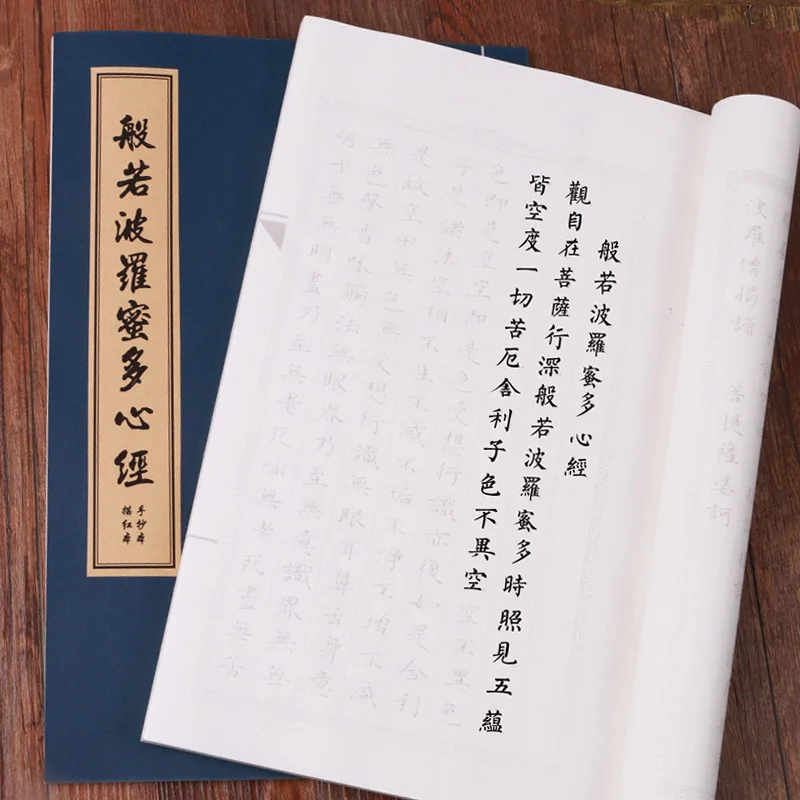 般若波羅蜜多心經
手抄本
描紅本
般若波羅蜜多心經
觀自在菩薩行深般若波羅蜜多時照見五蘊
皆空度一切苦厄舍利子色不異空空不異色
色即是空空即是色受想行識亦復如是舍利
子是諸法空相不生不滅不垢不淨不增不減
是故空中無色無受想行識無眼耳鼻舌身意
無色聲香味觸法無眼界乃至無意識界無無
明亦無無明盡乃至無老死亦無老死盡無苦
波羅僧揭諦 菩提薩婆訶